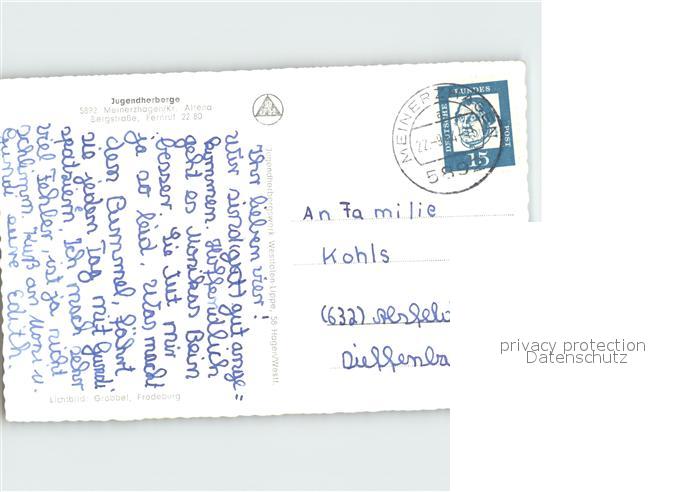 Jugendherberge
5892 Meinerzhagen/Kr. Altena
Bergstraße, Fernruf 22 80
Ihr lieben vier!
Wir sind gut ange=
kommen. Hoffentlich
geht es Monikas Bein
besser. Sie tut mir
ja so leid. Was macht
dem Bummel, fährt
sie jeden Tag mit
spazieren, Ich mach sehr
viel Fehler, ist ja nicht
schlimm. Kuß an Moni u.
eure Edith.
Jugendherbergswerk Westfalen-Lippe, 58 Hagen/Westf.
Lichtbild: Grobbel, Fredeburg
MEINERZHAGEN
589
DEUTSCHE BUNDESPOST
15
An Familie
Kohls
(632) Alsfeld
Dieffenba
privacy protection
Datenschutz